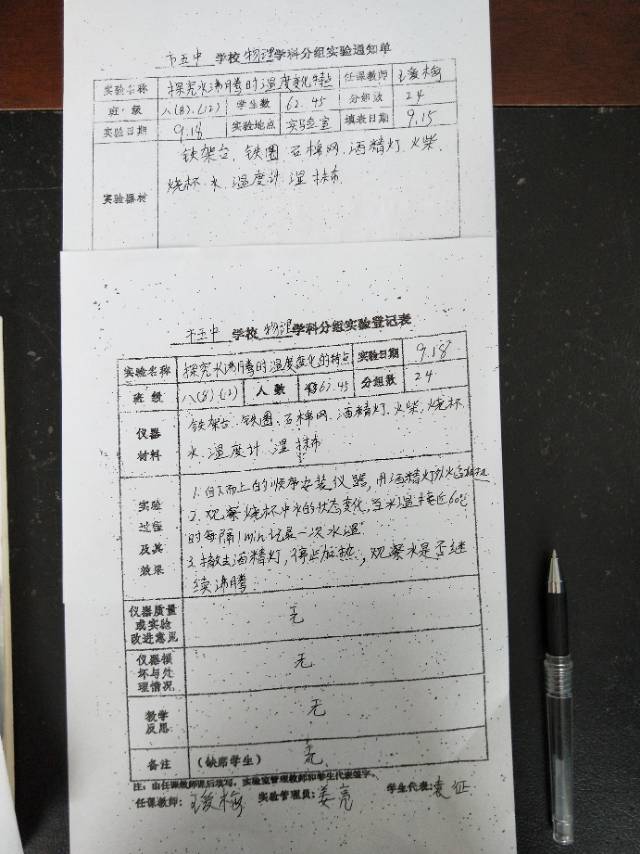 市五中 学校 物理 学科分组实验通知单
实验名称 探究水沸腾时温度变化特点 任课教师 王爱梅
班级 八(8).(12) 学生数 62.45 分组数 24
实验日期 9.18 实验地点 实验室 填表日期 9.15
实验器材
铁架台、铁圈、石棉网、酒精灯、火柴、
烧杯、水、温度计、湿抹布
市五中 学校 物理 学科分组实验登记表
实验名称 探究水沸腾时温度变化的特点 实验日期 9.18
班级 八(8).(12) 人数 62.45 分组数 24
仪器材料
铁架台、铁圈、石棉网、酒精灯、火柴、烧杯、
水、温度计、湿抹布
实验过程及其效果
1.自下而上的顺序安装仪器,用酒精灯外焰加热
2.观察烧杯中水的状态变化,当水温接近60℃
时每隔1min记录一次水温
3.撤去酒精灯,停止加热,观察水是否继
续沸腾
仪器质量或实验改进意见 无
仪器损坏与处理情况 无
教学反思 无
备注 (缺席学生) 无
注:由任课教师课后填写,实验室管理教师和学生代表签字。
任课教师:王爱梅 实验管理员:姜亮 学生代表:袁征